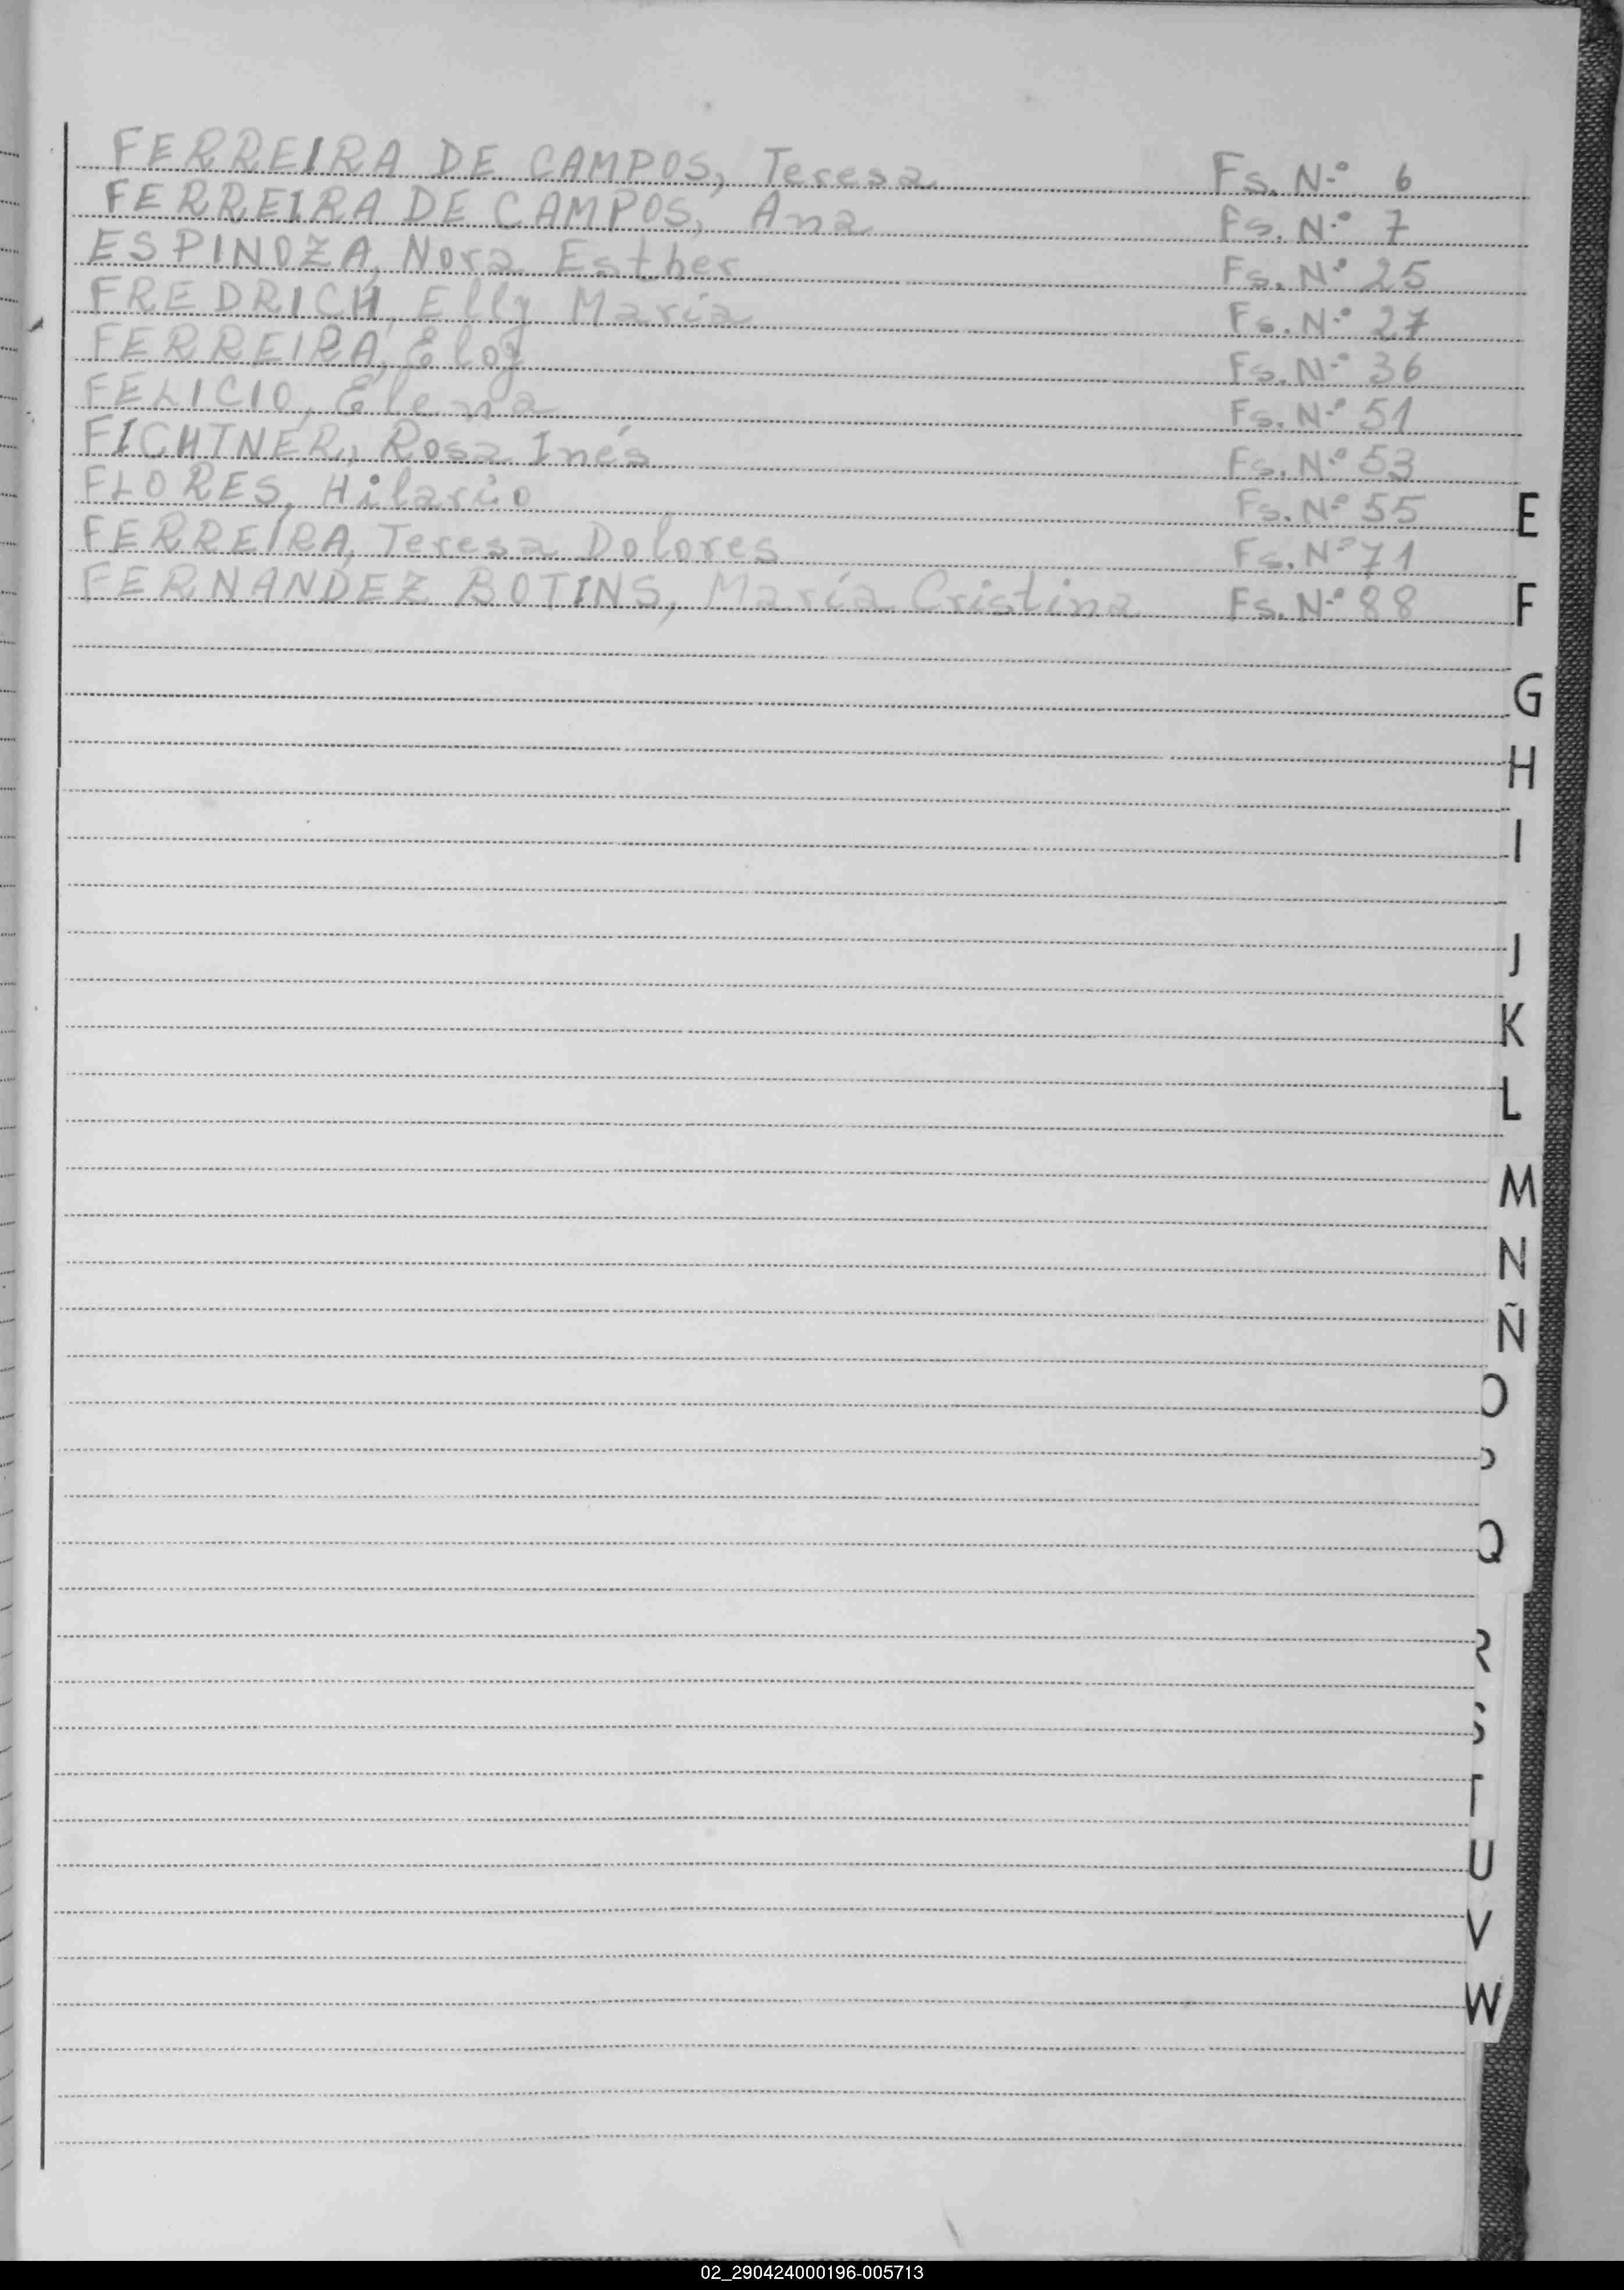 FERREIRA DE CAMPOS, Teresa Fs. N.º 6
FERREIRA DE CAMPOS, Ana Fs. N.º 7
ESPINOZA, Nora Esther Fs. N.º 25
FREDRICH, Elly María Fs. N.º 27
FERREIRA, Eloy Fs. N.º 36
FELICIO, Elena Fs. N.º 51
FICHTNER, Rosa Inés Fs. N.º 53
FLORES, Hilario Fs. N.º 55
FERREIRA, Teresa Dolores Fs. N.º 71
FERNANDEZ BOTINS, María Cristina Fs. N.º 88
E
F
G
H
I
J
K
L
M
N
Ñ
O
P
Q
R
S
T
U
V
W
02_290424000196-005713